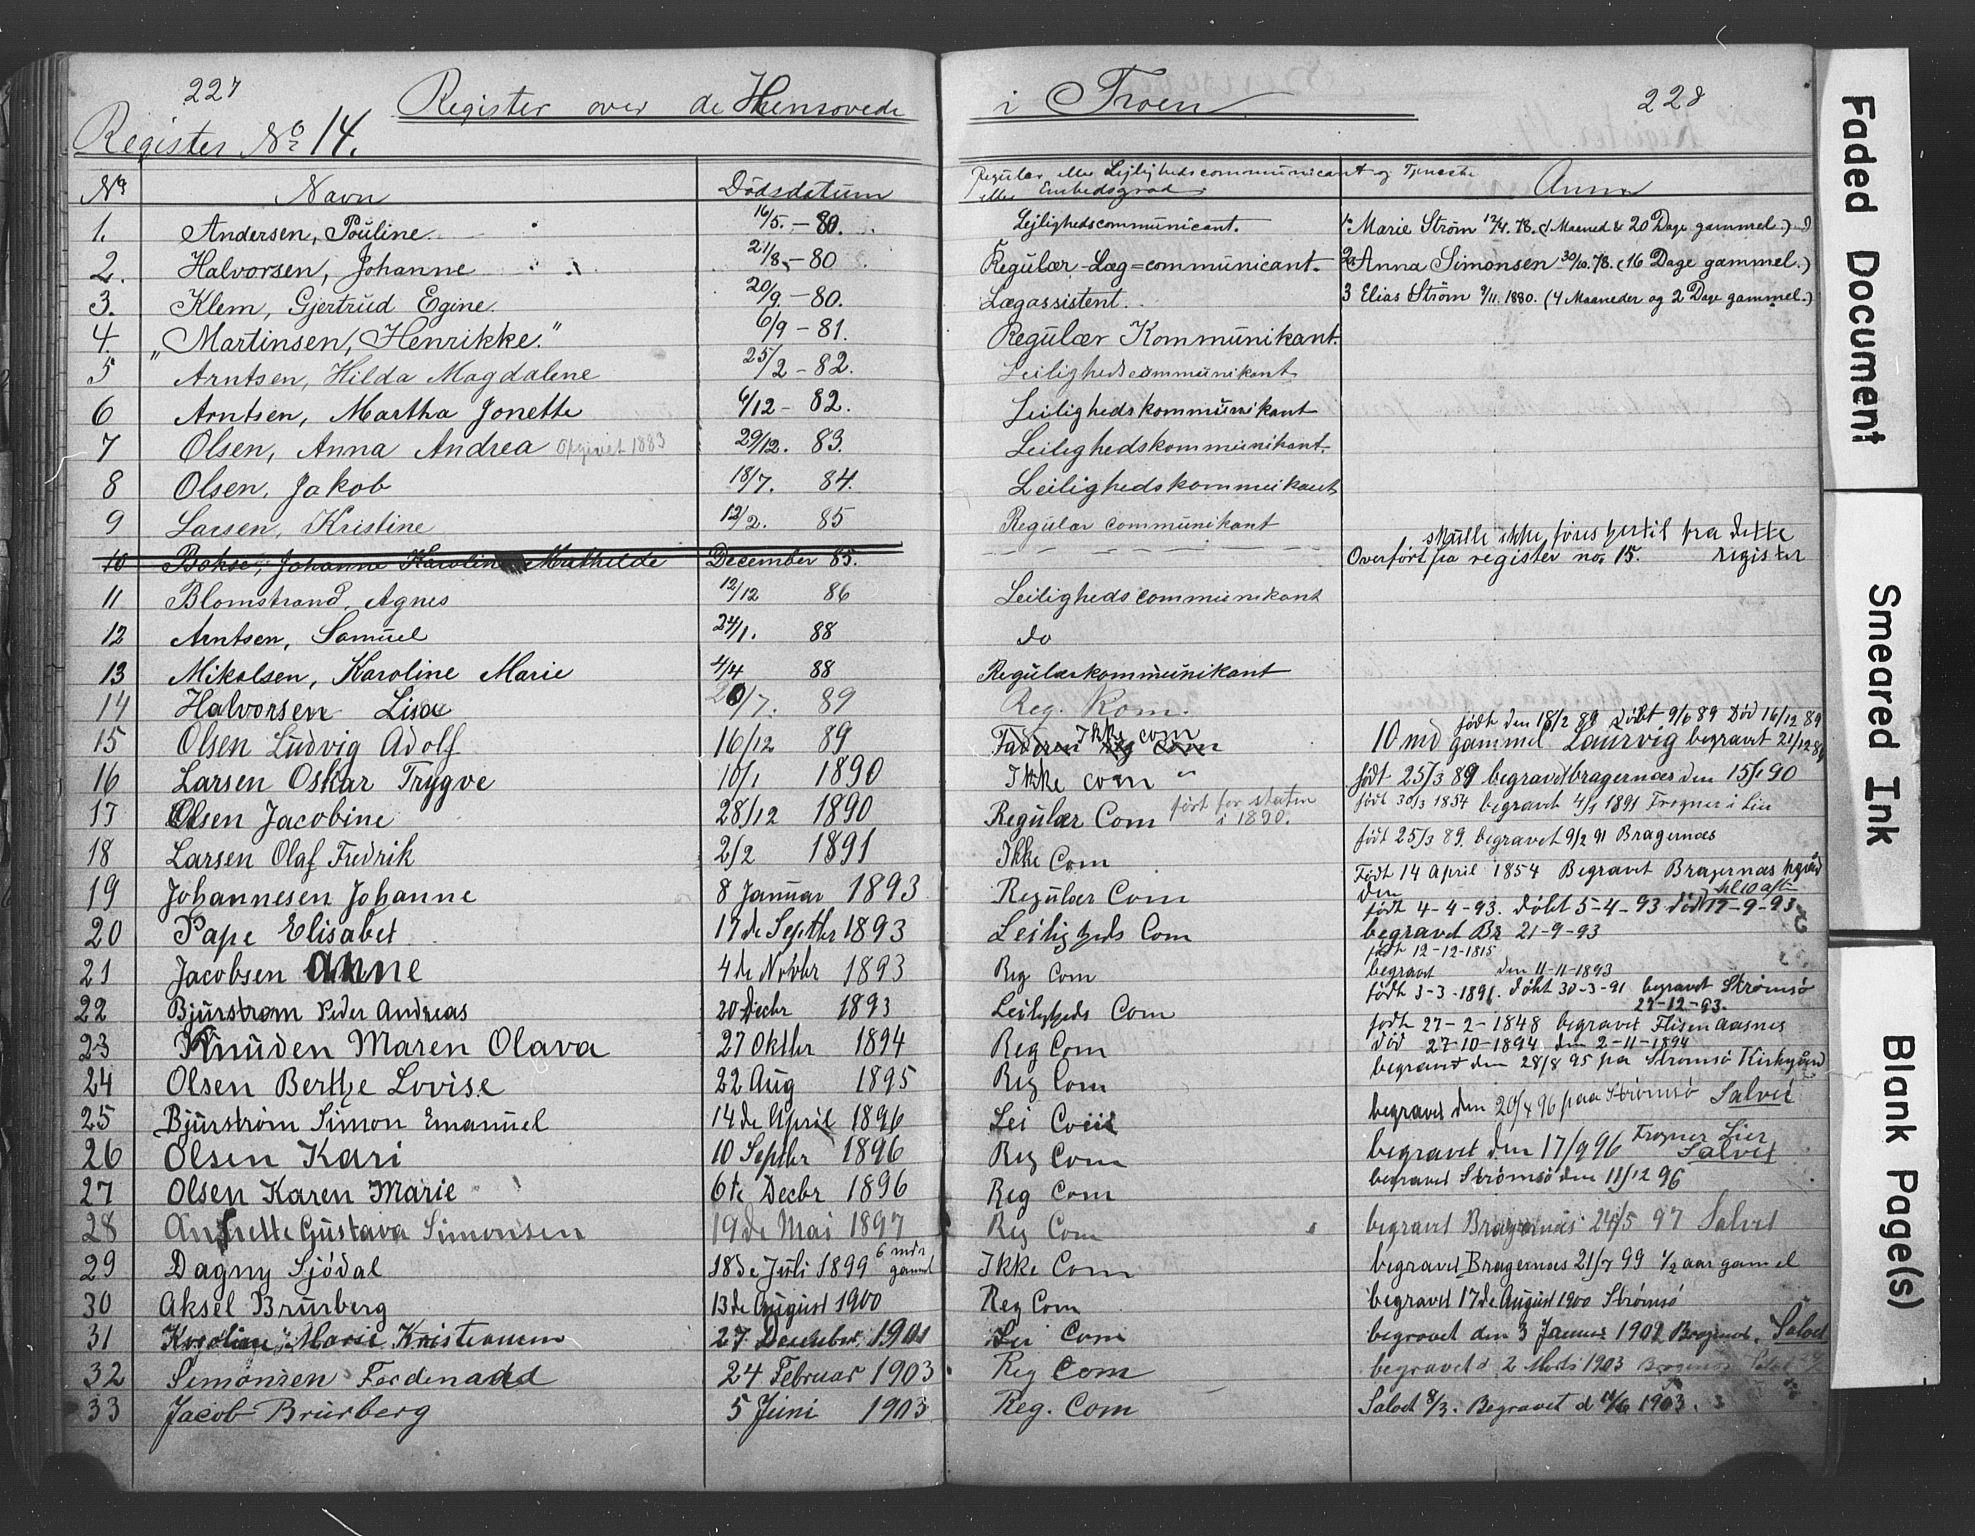 227
Register over de Hensovede i Troen
228
Register No 14.
No Navn Dødsdatum Regulær eller Lejlighedscommunicant og Tjeneste eller Embedsgrad Anm
1. Andersen, Pouline. 16/5. – 80. Lejlighedscommunicant. 1. Marie Strøm 12/4. 78. Maaned & 20 Dage gammel.)
2. Halvorsen, Johanne 21/8. – 80 Regulær-Læg=communicant. 2. Anna Simonsen 30/10. 78. (16 Dage gammel.)
3. Klem, Gjertrud Egine. 20/9. – 80. Lægassistent. 3 Elias Strøm 9/11. 1880. (4 Maaneder og 2 Dage gammel.)
4. „Martinsen, Henrikke." 6/9 – 81. Regulær Kommunikant.
5 Arntsen, Hilda Magdalene 25/2 – 82. Leilighedscommunikant
6 Arntsen, Martha Jonette 6/12 – 82. Leilighedskommunikant
7 Olsen, Anna Andrea Opgivet 1883 29/12. 83. Leilighedskommunikant.
8 Olsen, Jakob 18/7. 84. Leilighedskommunikant
9 Larsen, Kristine 12/2. 85 Regulær communikant
skulle ikke føres hertil fra dette
10 Bokse, Johanne Karoline Mathilde December 85. Overført fra register no. 15. register
11 Blomstrand, Agnes 12/12 86 Leilighedscommunikant
12 Arntsen, Samuel 24/1. 88 do
13 Mikalsen, Karoline Marie 4/4 88 Regulærkommunikant
14 Halvorsen Lisa 20/7. 89 Reg. Kom.
født den 18/2 89 Døbt 9/6 89 Død 16/12 89
15 Olsen Ludvig Adolf 16/12 89 Ikke com 10 md gammel Laurvig begravet 21/12 89
16 Larsen Oskar Trygve 10/1 1890 Ikke com " født 25/3 89 begravet bragernæs den 15/1 90
17 Olsen Jacobine 28/12 1890 Regulær Com ført for staten i 1890. født 30/3 1854 begravet 4/1 1891 Frogner i Lier
18 Larsen Olaf Fredrik 2/2 1891 Ikke Com født 25/3 89. begravet 9/2 91 Bragernæs
Født 14 April 1854 Begravet Bragernæs
19 Johannesen Johanne 8 Januar 1893 Regulær Com den
født 4-4-93. døbt 5-4-93 død 17-9-93
20 Pape Elisabet 17 de Septbr 1893 Leiligheds Com begravet Br 21-9-93
født 12-12-1815
21 Jacobsen Anne 4 de Novbr 1893 Reg Com begravet den 11-11-1893
født 3-3-1891. døbt 30-3-91 begravet Strømsø
22 Bjurstrøm Peder Andreas 20 Decbr 1893 Leiligheds Com 27-12-93.
født 27-2-1848 begravet Flisen aasnes
23 Knuden Maren Olava 27 Oktbr 1894 Reg Com død 27-10-1894 den 2-11-1894
24 Olsen Berthe Lovise 22 Aug 1895 Reg Com begravet den 28/8 95 paa Strømsø Kirkegård
25 Bjurstrøm Simon Emanuel 14 de April 1896 Lei Com begravet den 20/4 96 paa Strømsø Salvet
26 Olsen Kari 10 Septbr 1896 Reg Com begravet den 17/9 96 Frogner Lier Salvet
27 Olsen Karen Marie 6te Decbr 1896 Reg Com begravet Strømsø den 11/12 96
28 Gustava Simonsen 19 de Mai 1897 Reg Com begravet Bragernæs 24/5 97 Salvet
29 Dagny Sjödal 18 de Juli 1899 6 mdr gammel Ikke Com begravet Bragernæs 21/7 99 1/2 aar gamel
30 Aksel Brurberg 13 de August 1900 Reg Com begravet 17 de August 1900 Strømsø
31 Karoline Marie Kristiansen 27 December 1901 Lei Com begravet den 3 Januar 1902 Bragernæs. Salvet
32 Simonsen Ferdenand 24 Februar 1903 Reg Com begravet d 2 Marts 1903 Bragernæs
33 Jacob Brurberg 5 Juni 1903 Reg. Com Salvet 8/3. Begravet d 11/6 1903.
Faded Document
Smeared Ink
Blank Page(s)